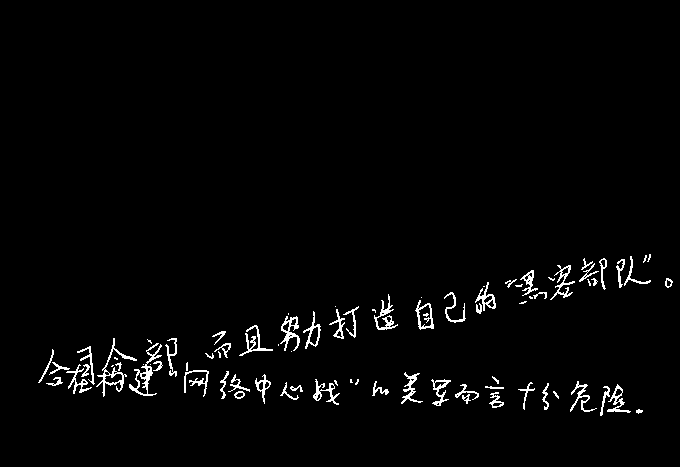 司令部，而且努力打造自己的“黑客部队”。
合构建“网络中心战”的美军而言十分危险。